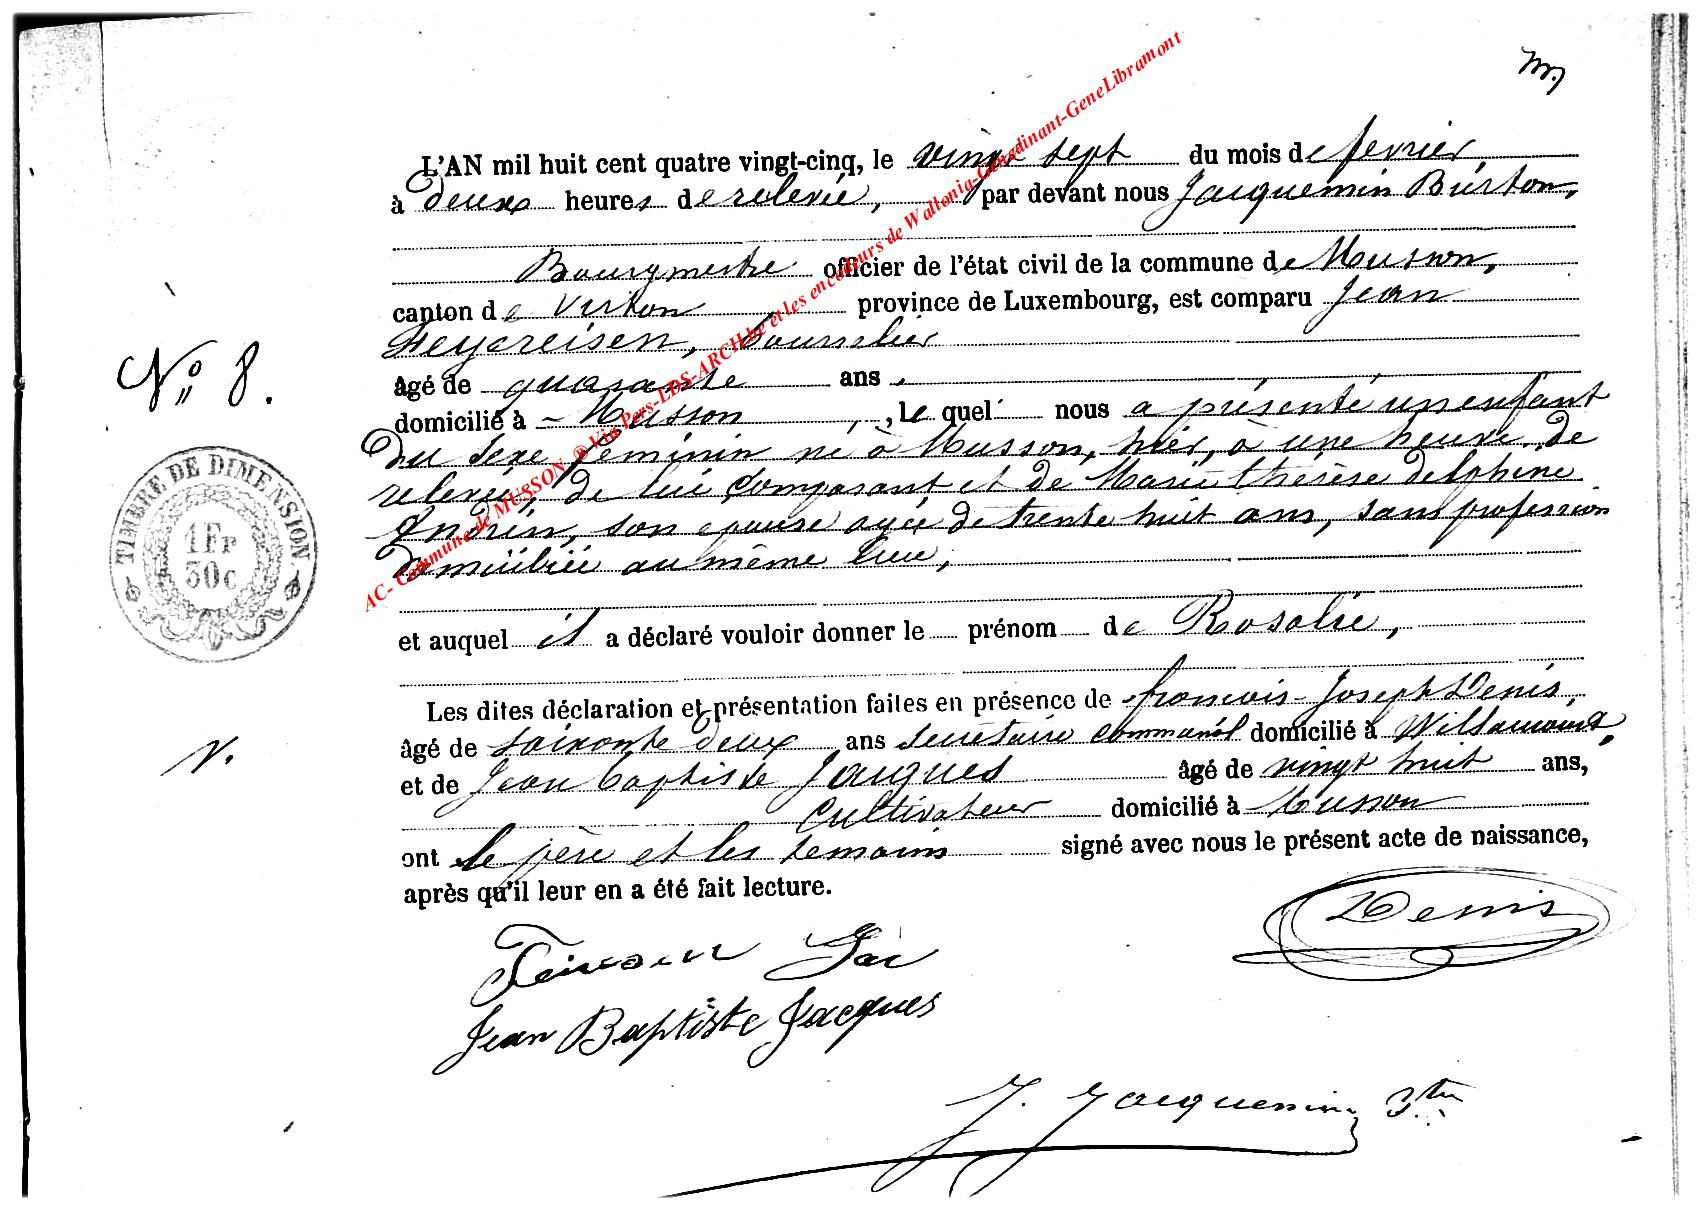 L'AN mil huit cent quatre vingt-cinq, le vingt sept du mois de fevrier
à deux heures de relevée, par devant nous Jacquemin Burton,
Bourgmestre officier de l'état civil de la commune de Musson,
canton de Virton province de Luxembourg, est comparu Jean
Feyereisen, Journalier
âgé de quarante ans
domicilié à Musson, Le quel nous a présenté un enfant
du sexe féminin né à Musson, hier, à une heure de
relevée, de lui Comparant et de Marie thérèse delphine
son épouse agée de trente huit ans, sans profession
domiciliée au même lieu,
et auquel il a déclaré vouloir donner le prénom de Rosalie,
Les dites déclaration et présentation faites en présence de francois-Joseph Denis,
âgé de soixante deux ans secrétaire communal domicilié à Willancourt,
et de Jean Baptiste Jacques âgé de vingt huit ans,
Cultivateur domicilié à Musson
ont le père et les temoins signé avec nous le présent acte de naissance,
après qu'il leur en a été fait lecture.
Denis
Jean Baptiste Jacques
J. Jacquemin
No 8.
TIMBRE DE DIMENSION
1 Fr
50c
v.
AC- Commune de MUSSON ® Via Pers-LDS-ARCH.be et les encodeurs de Wallonia-Genedinant-GeneLibramont